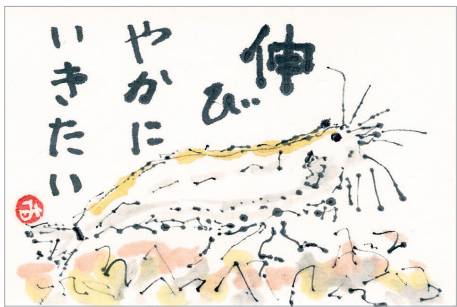 伸び
やかに
いきたい